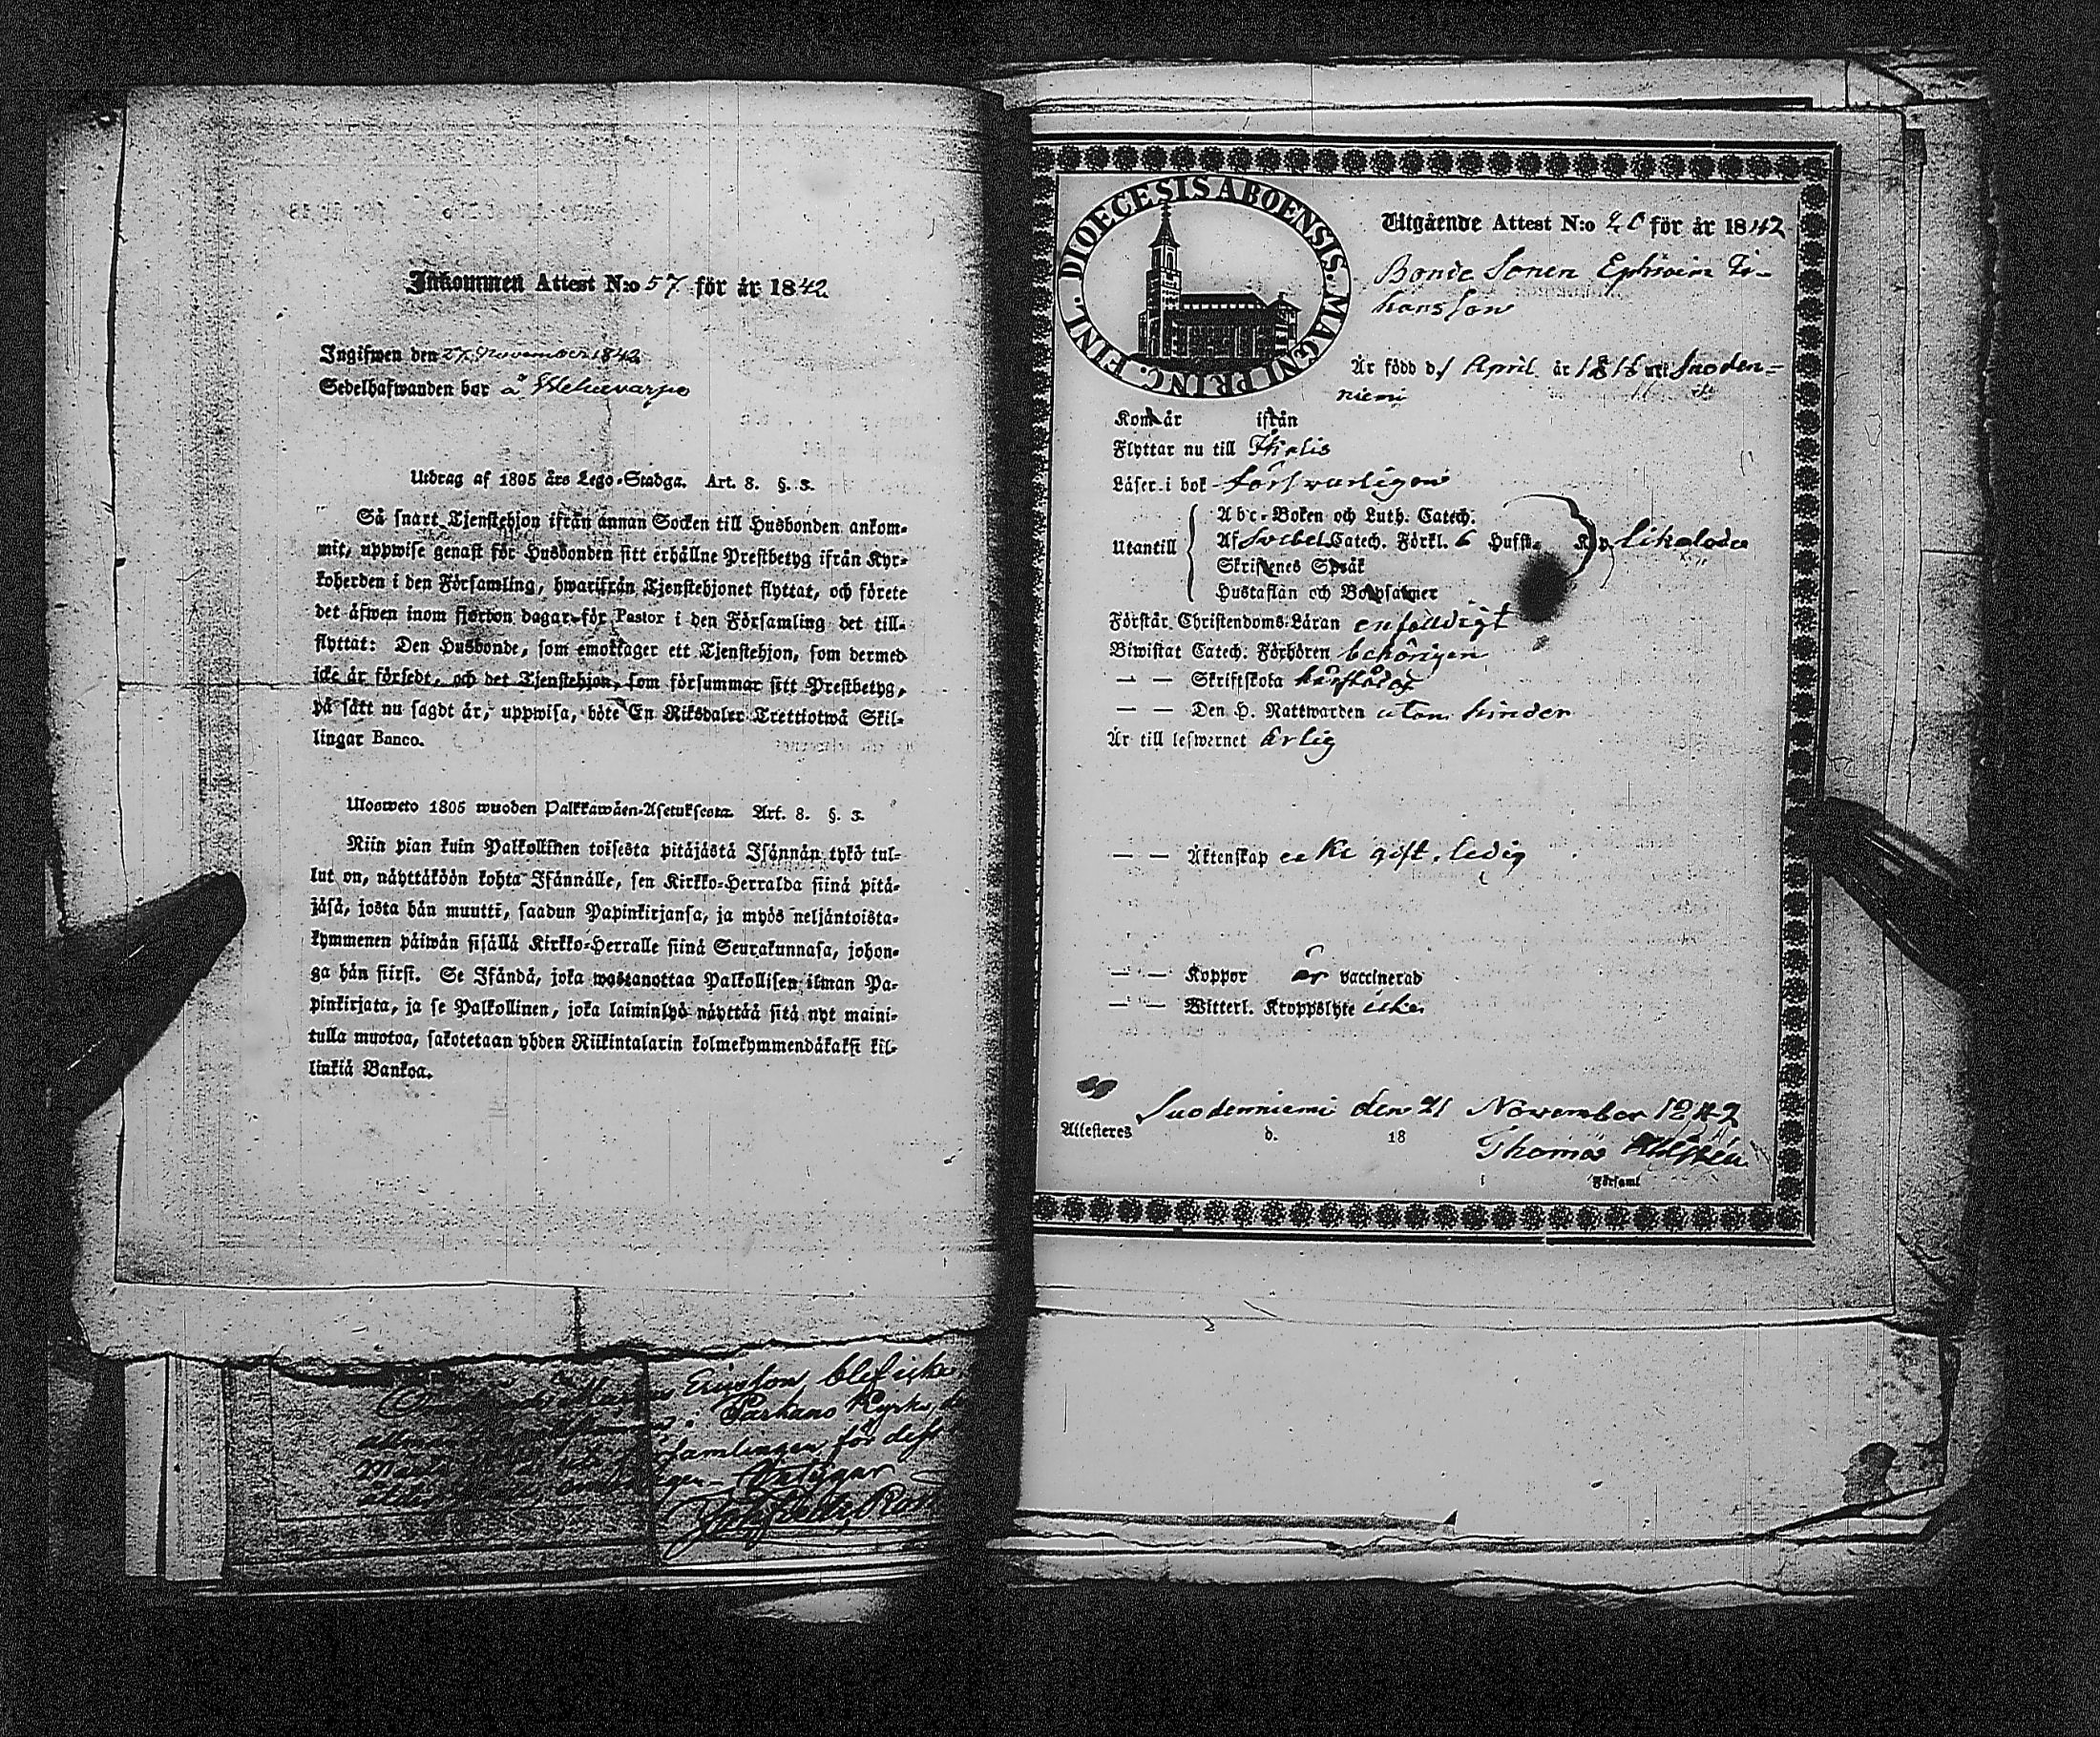 Inkommen Attest N:o 57 för år 1842
Ingifwen den 27 November 1842
Sedelhafwanden bor å
Utdrag af 1805 års Lego-Stadga. Art. 8. §. 3.
Så snart Tjenstehjon ifrån annan Socken till Husbonden ankom-
mit, uppwise genast för Husbonden sitt erhållne Prestbetyg ifrån Kyr-
koherden i den Församling, hwarifrån Tjenstehjonet flyttat, och förete
det äfwen inom fjorton dagar för Pastor i den Församling det till-
flyttat: Den Husbonde, som emottager ett Tjenstehjon, som dermed
icke är försedt, och det Tjenstehjon, som försummar sitt Prestbetyg,
på sätt nu sagdt är, uppwisa, böte En Riksdaler Trettiotwå Skil-
lingar Banco.
Ulosweto 1805 wuoden Palkkawäen-Asetuksesta. Art. 8. §. 3.
Niin pian kuin Palkollinen toisesta pitäjästä Isännän tykö tul-
lut on, näyttäköön kohta Isännälle, sen Kirkko-Herralda siinä pitä-
jäsä, josta hän muutti, saadun Papinkirjansa, ja myös neljäntoista-
kymmenen päiwän sisällä Kirkko-Herralle siinä Seurakunnasa, johon-
ga hän siirsi. Se Isändä, joka wastanottaa Palkollisen ilman Pa-
pinkirjata, ja se Palkollinen, joka laiminlyö näyttää sitä nyt maini-
tulla muotoa, sakotetaan yhden Riikintalarin kolmekymmendäkaksi kil-
linkiä Bankoa.
Ericsson blef icke
i Parkano Kyrko
församlingen för dess
DIOECESIS ABOENSIS. MAGNI PRINC. FINL.
Utgående Attest N:o 20 för år 1842
Bonde Sonen Ephraim Jo-
hansson
Är född d. 1 April år 1816 uti Suoden-
niemi
Kom år ifrån
Flyttar nu till Ikalis
Läser i bok försvarligen
Utantill
Abc-Boken och Luth. Catech.
Af Svebel. Catech. Förkl. 6 Hufst. likaledes
Skriftenes Språk
Hustaflan och Botpsalmer
Förstår Christendoms-Läran enfalldigt
Biwistat Catech. Förhören behörigen
— — Skriftskola
— — Den H. Nattwarden utan hinder
Är till lefwernet ärlig
— — Äktenskap ecke gift, ledig
— — Koppor är vaccinerad
— — Witterl. Kroppslyte icke
Suodenniemi den 21 November 1842
Attesteres d. 18
Thomas
i Församl